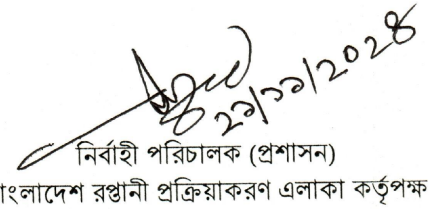 ২১/১১/২০২৪
নির্বাহী পরিচালক (প্রশাসন)
াংলাদেশ রপ্তানী প্রক্রিয়াকরণ এলাকা কর্তৃপক্ষ